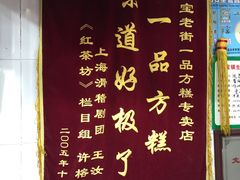 宝老街一品方糕专卖店
一品方糕
味道好极了
上海滑稽剧团 王汝
《红茶坊》栏目组 许榕
二○○五年十